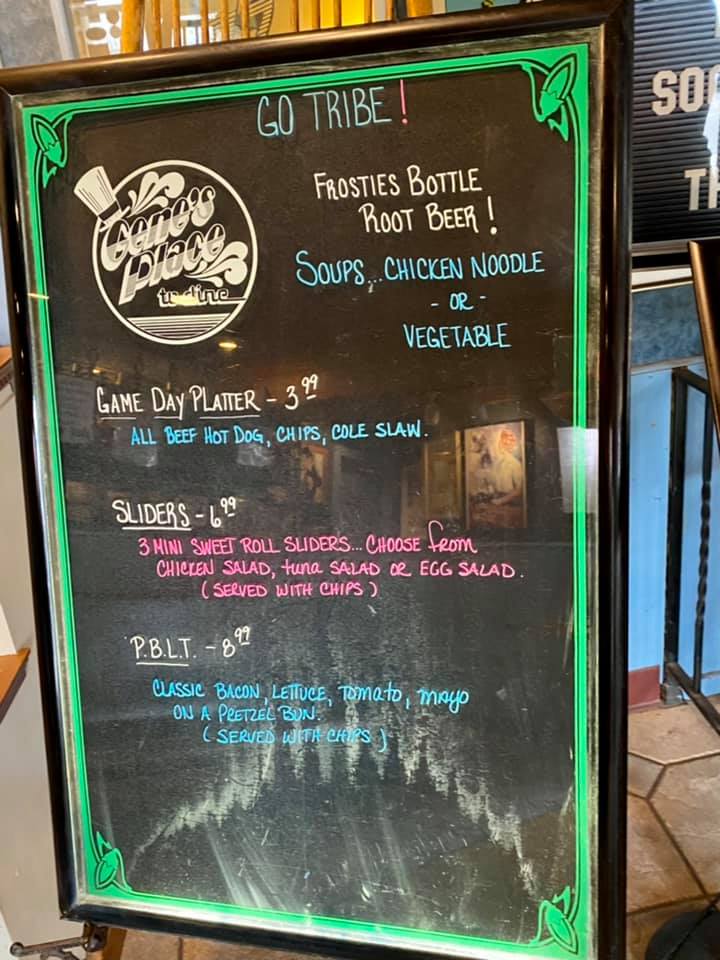 GO TRIBE!
Gene's
Place
to dine
FROSTIES BOTTLE
ROOT BEER!
SOUPS... CHICKEN NOODLE
- OR -
VEGETABLE
GAME DAY PLATTER - 3.99
ALL BEEF HOT DOG, CHIPS, COLE SLAW.
SLIDERS - 6.99
3 MINI SWEET ROLL SLIDERS... CHOOSE from
CHICKEN SALAD, tuna SALAD OR EGG SALAD.
(SERVED WITH CHIPS)
P.B.L.T. - 8.99
CLASSIC BACON, LETTUCE, Tomato, mayo
ON A PRETZEL BUN.
(SERVED WITH CHIPS)